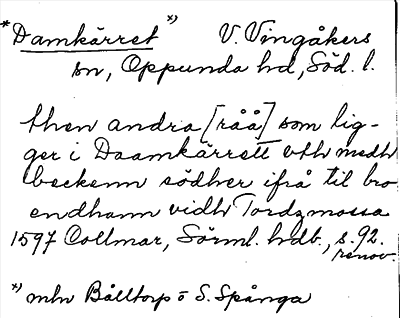 * Damkärret *) V. Vingåkers
sn, Oppunda hd, Söd. l.
then andra [råå] som lig-
ger i Daamkärrett vth medh
beckenn södher ifrå til bro
endhann vidh Tordzmossa
1597 Collmar, Sörml. hdb., s. 92.
renov.
*) mln Bålltorp o S. Spånga